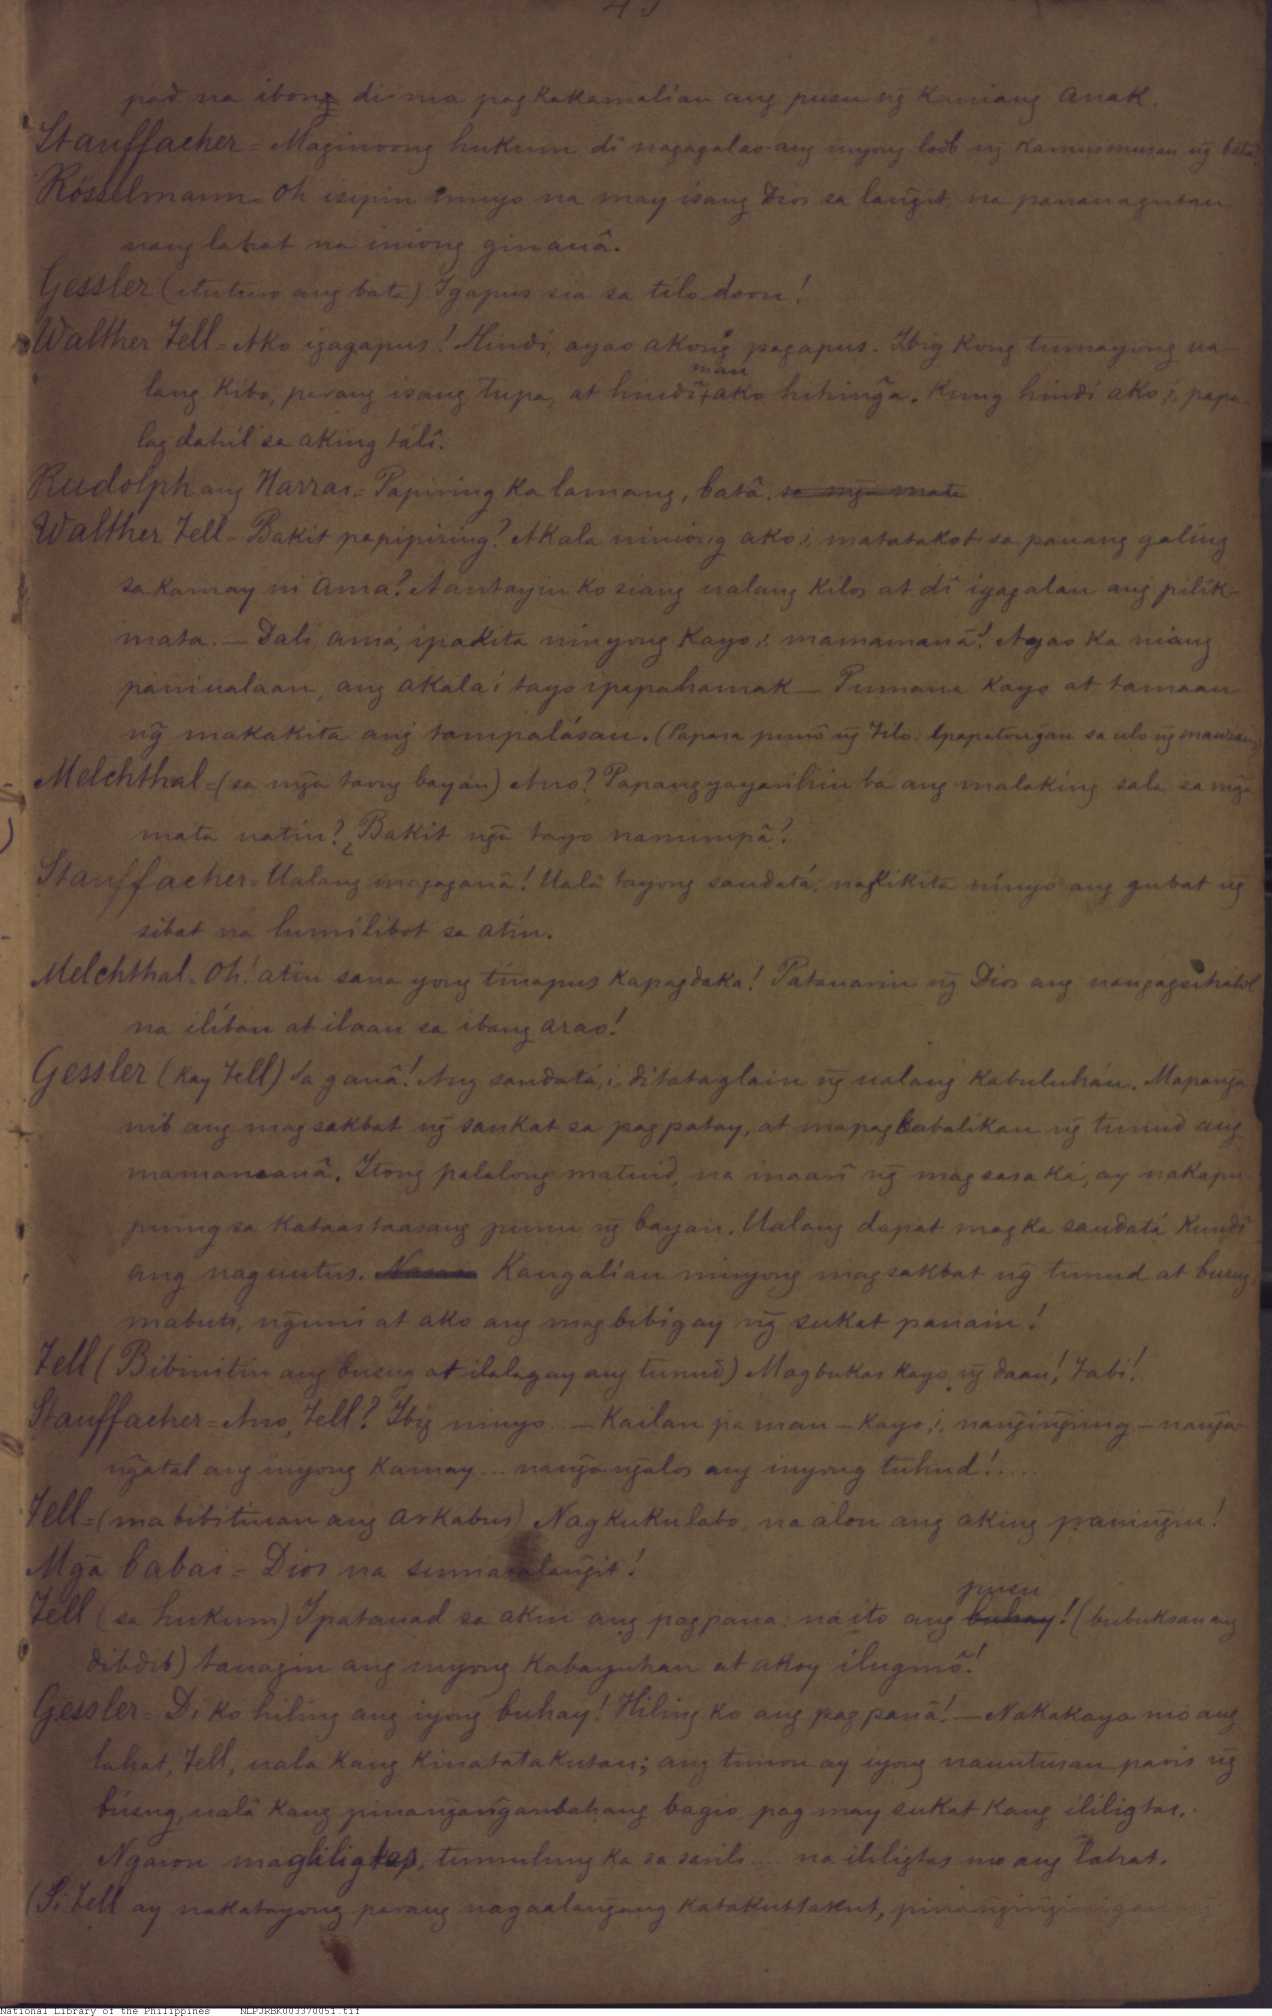 pad na ibong di ma pagkakamalian ang pusu ng̃ kaniang anak.
Stauffacher = Maginoong hukum di nagagalao ang inyong loob ng̃ kamusmusan ng̃ bata.
Rösselmann = Oh isipin ninyo na may isang Dios sa lang̃it, na pananagutan
nang lahat na iniong ginauâ.
Gessler (ituturo ang bata) Igapus sia sa tilo doon!
Walther Tell = Ako igagapus! Hindi, ayao akong pagapus. Ibig kong tumayong ua-
lang kibo, parang isang tupa, at hindî man ako hihing̃a. Kung hindi ako,i, papa-
lag dahil sa aking táli.
Rudolph ang Harras = Papiring ka lamang, batâ. sa mg̃a mata
Walther Tell = Bakit papipiring? Akala niniong ako,i, matatakot sa panang galing
sa kamay ni Ama? Aantayin ko siang ualang kilos at di igagalau ang pilik-
mata. — Dali amá, ipakita ninyong kayo,i mamamanâ! Ayao ka niang
paniualaan, ang akala,i tayo ipapahamak — Pumana kayo at tamaan
ng̃ makakita ang tampalásan. (Papasa punô ng̃ Tilo. Ipapatong̃an sa ulo ng̃ manzanas)
Melchthal = (sa mg̃a tauong bayan) Ano? Papangyayarihin ba ang malaking sala sa mg̃a
mata natin? ¿Bakit ng̃a tayo nanumpâ?
Stauffacher = Ualang magagauâ! Ualâ tayong sandatá, nagkikita ninyo ang gubat ng̃
sibat na lumilibot sa atin.
Melchthal = Oh! atin sana yong tinapus kapagdaka! Patauarin ng̃ Dios ang nangagsihatol
na iliban at ilaan sa ibang arao!
Gessler (kay Tell) Sa gauâ! Ang sandatá,i, di tataglain ng̃ ualang kabuluhán. Mapang̃a-
nib ang magsakbat ng̃ sankat sa pagpatay, at mapagbabalikan ng̃ tunud ang
mamamanâ. Itong palalong matuid, na inaari ng̃ magsasaka, ay nakapu-
puing sa kataastaasang punu ng̃ bayan. Ualang dapat magka sandatá kundî
ang naguutus. Kaugalian ninyong magsakbat ng̃ tunud at busug,
mabuti, ng̃uni at ako ang magbibigay ng̃ sukat panain!
Tell (Bibinitin ang busug at ilalagay ang tunud) Magbukas kayo ng̃ daan! Tabi!
Stauffacher = Ano, Tell? Ibig ninyo ... — Kailan pa man — kayo,i, nang̃ing̃inig — nang̃a-
ng̃atal ang inyong kamay ... nang̃ang̃alos ang inyong tuhud!.....
Tell = (mabibitiuan ang arkabus) Nagkukulabo, na alon ang aking paning̃in!
Mg̃a babai = Dios na sumasalang̃it!
Tell (sa hukum) Ipatauad sa akin ang pagpana: naito ang buhay pusu! (bubuksan ang
dibdib) tauagin ang inyong kabayuhan at akoy ilugmô!
Gessler = Di ko hiling ang iyong buhay! Hiling ko ang pagpanâ! — Nakakaya mo ang
lahat, Tell, uala kang kinatatakutan; ang timon ay iyong nauutusan paris ng̃
busug, ualâ kang pinang̃ang̃anbahang bagio pag may sukat kang ililigtas.
Ngaion magliligtas, tumulung ka sa sarili .... na ililigtas mo ang lahat.
(Si Tell ay nakatayong parang nagaalang̃ang katakuttakut,
National Library of the Philippines NLPJRBK003370051.tif